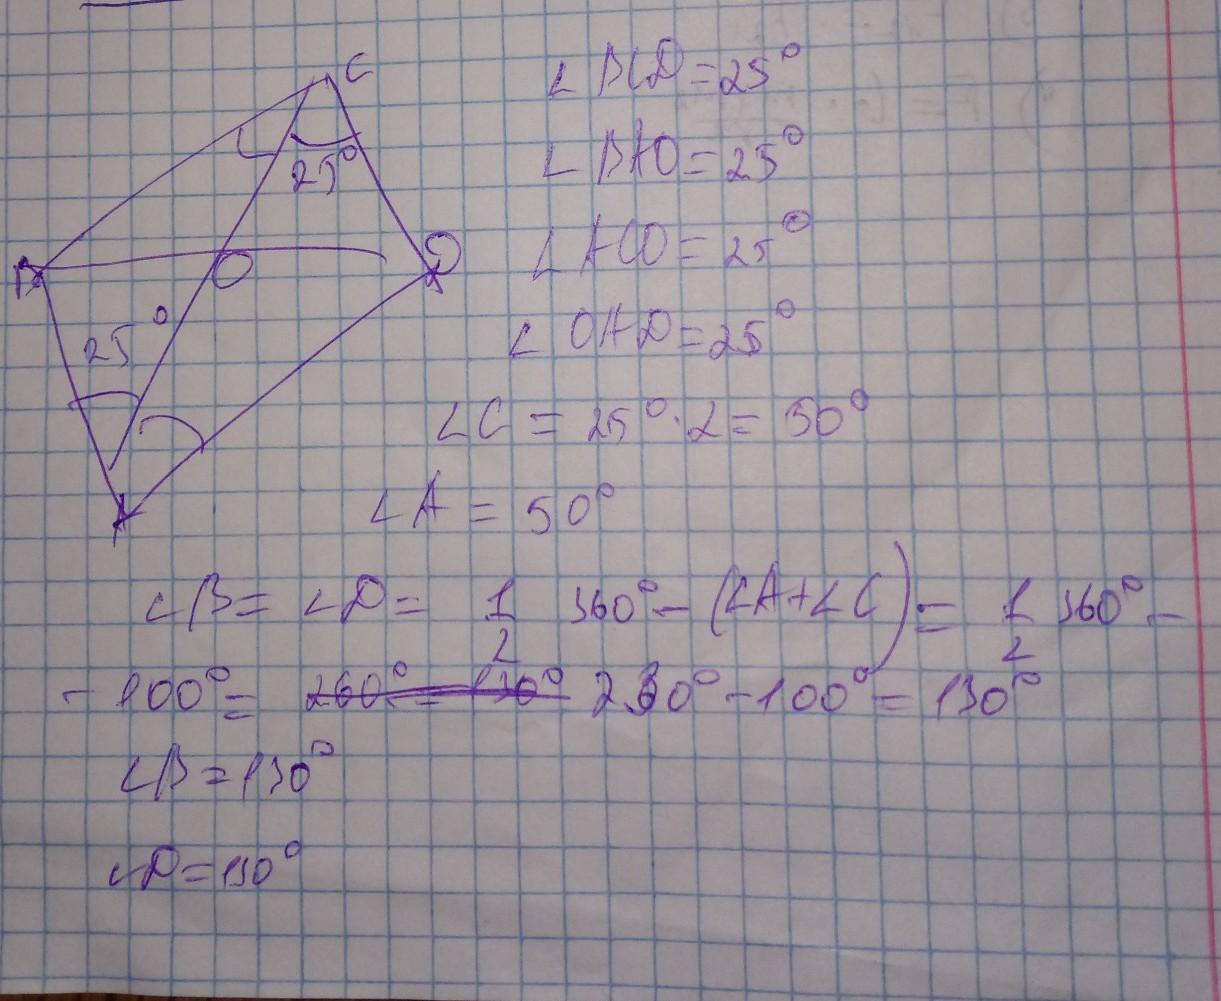 C
25°
B
O
D
25°
A
∠BCD=25°
∠BAO=25°
∠ACO=25°
∠OAD=25°
∠C = 25°·2= 50°
∠A = 50°
∠B= ∠D= 1/2 360°- (∠A+∠C)= 1/2 360°-
- 100°= 260°=130° 230°-100°=130°
∠B=130°
∠D=130°